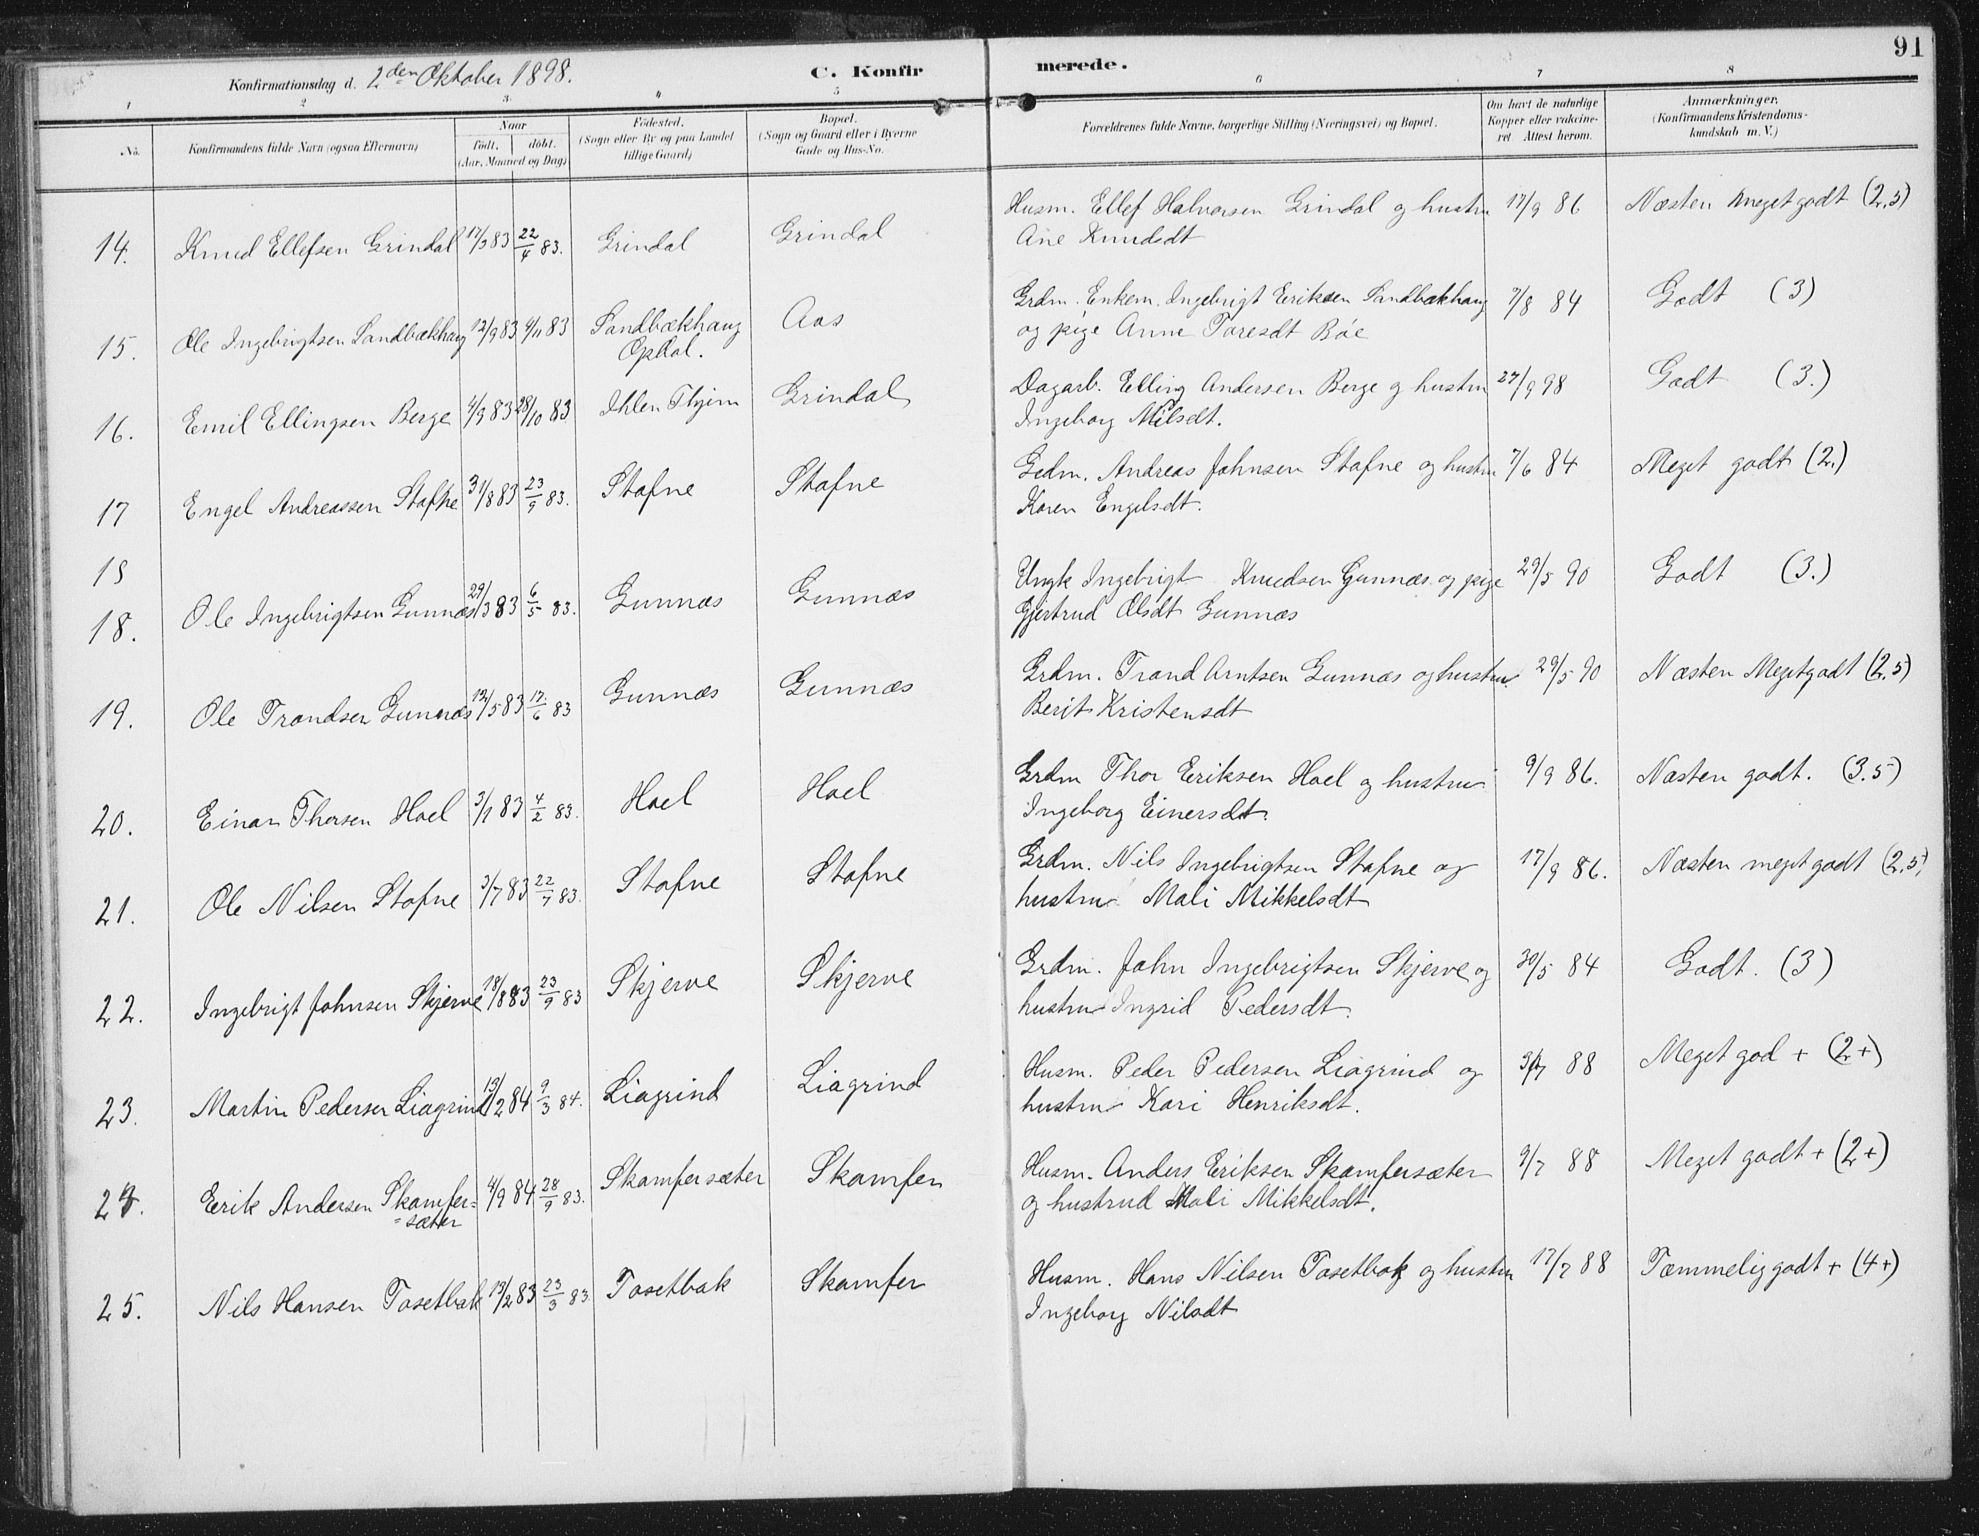 91
Konfirmationsdag d. 2den Oktober 1898.
C. Konfirmerede.
1 2 3 4 5 6 7 8
No. Konfirmandens fulde Navn (ogsaa Efternavn)
Naar
født. døbt.
(Aar, Maaned og Dag)
Fødested.
(Sogn eller By og paa Landet
tillige Gaard)
Bopæl.
(Sogn og Gaard eller i Byerne
Gade og Hus-No.
Forældrenes fulde Navne, borgerlige Stilling (Næringsvei) og Bopæl.
Om havt de naturlige
Kopper eller vakcine-
ret Attest herom.
Anmærkninger.
(Konfirmandens Kristendoms-
kundskab m. V.)
14. Knud Ellefsen Grindal 17/3 83 22/4 83. Grindal Grindal Husm. Ellef Halvorsen Grindal og hustru 17/9 86 Næsten meget godt (2,5)
Ane Knudsdt
15. Ole Ingebrigtsen Sandbækhaug 12/9 83 4/11 83 Sandbækhaug Aas Grdm. Enkem. Ingebrigt Eriksen Sandbækhaug 7/8 84 Godt (3)
Opdal. og pige Anne Toresdt Böe
16. Emil Ellingsen Berge 4/9 83 28/10 83 Ihlen Thjem Grindal Dagarb. Elling Andersen Berge og hustru 27/9 98 Godt (3.)
Ingeborg Nilsdt.
17 Engel Andreassen Stafne 31/8 83 23/9 83. Stafne Stafne Grdm. Andreas Johnsen Stafne og hustru 7/6 84 Meget godt (2.)
Karen Engelsdt.
18
18. Ole Ingebrigtsen Gunnæs 29/3 83 6/5 83. Gunnæs Gunnæs Ungk Ingebrigt Knudsen Gunnæs og pige 29/5 90 Godt (3.)
Gjertrud Olsdt Gunnæs
19. Ole Trondsen Gunnæs 12/5 83 17/6 83 Gunnæs Gunnæs Grdm. Trond Arntsen Gunnæs og hustru 29/5 90 Næsten Meget godt (2,5)
Berit Kristensdt
20. Einar Thorsen Hoel 3/1 83 4/2 83. Hoel Hoel Grdm Thor Eriksen Hoel og hustru 9/9 86. Næsten godt. (3.5)
Ingeborg Einersdt.
21. Ole Nilsen Stafne 3/7 83 22/7 83. Stafne Stafne Grdm. Nils Ingebrigtsen Stafne og 17/9 86. Næsten meget godt (2,5)
hustru Mali Mikkelsdt
22. Ingebrigt Johnsen Skjerve 18/8 83 23/9 83 Skjerve Skjerve Grdm. John Ingebrigtsen Skjerve og 30/5 84 Godt. (3)
hustru Ingrid Pedersdt.
23. Martin Pedersen Liagrind 13/2 84 9/3 84. Liagrind Liagrind Husm. Peder Pedersen Liagrind og 9/7 88 Meget god + (2+)
hustru Kari Henriksdt.
24. Erik Andersen Skamfer= 4/9 84 28/9 83. Skamfersæter Skamfer Husm. Anders Eriksen Skamfersæter 9/7 88 Meget godt + (2+)
=sæter og hustrud Mali Mikkelsdt.
25. Nils Hansen Tosetbak 13/2 83 23/3 83 Tosetbak Skamfer Husm. Hans Nilsen Tosetbak og hustru 17/7 88 Tæmmelig godt + (4+)
Ingeborg Nilsdt